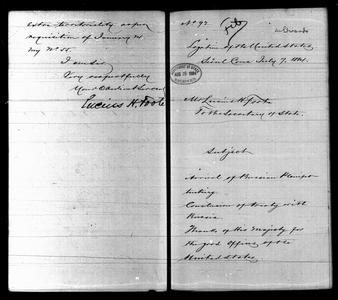 extra territoriality as per
requisition of January
my No.
I am sir
Very respectfully
Your Obedient Servant
Lucius H. Foote
No 92
Legation of the United States
Seoul Corea July 7. 1884.
AUG 1884
Mr Lucius H. Foote
To the Secretary of State.
Subject
Arrival of Russian Plenipo-
tentiary
Conclusion of treaty with
Russia.
Thanks of His Majesty for
the good Offices of the
United States.